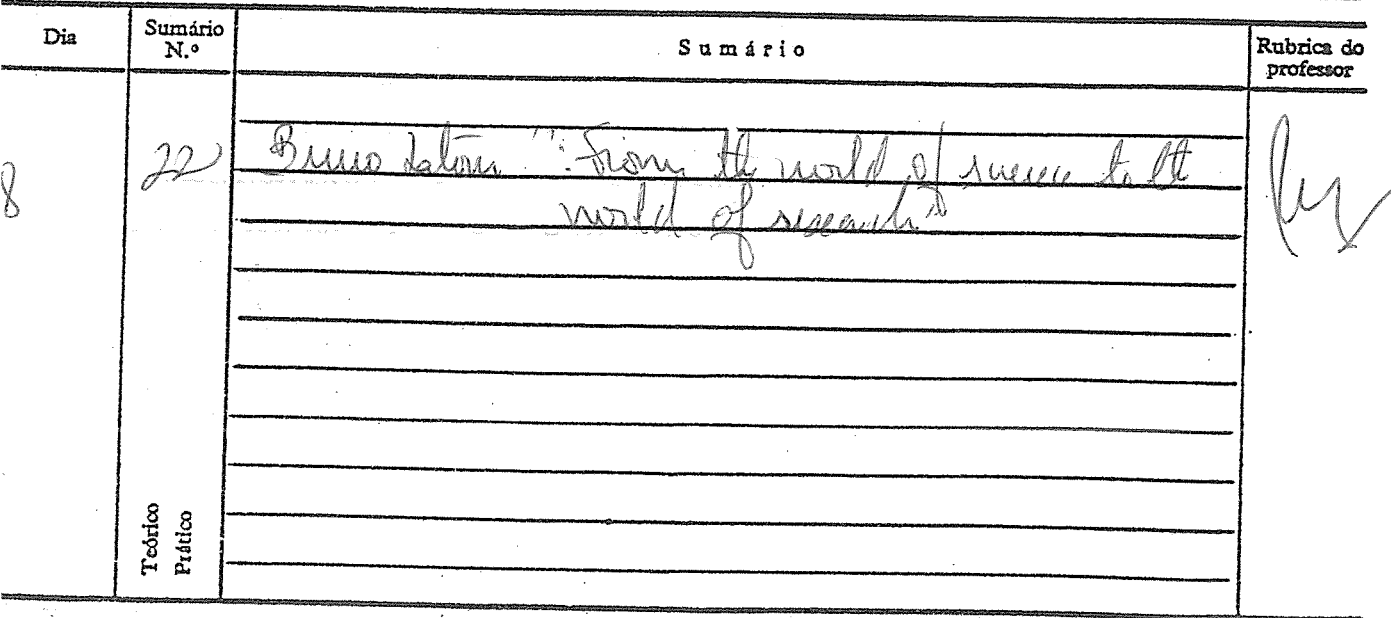 Dia
Sumário N.º
Sumário
Rubrica do professor
8
22
Bruno Latour ": From the world of science to the
world of research"
Teórico
Prático